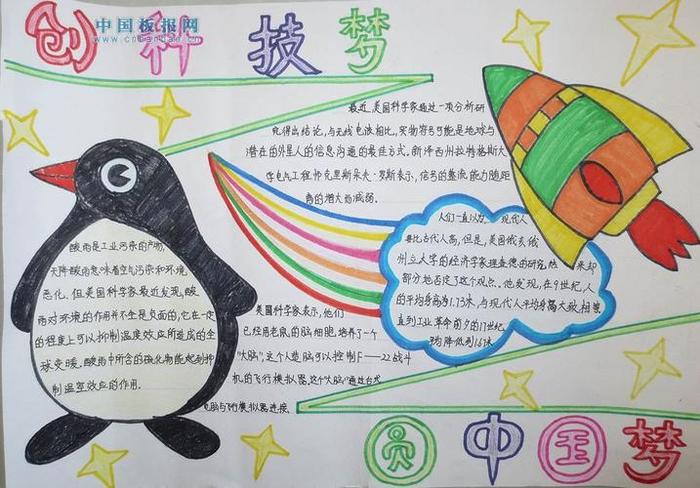 创科技梦
中国板报网
www.cnbanbao.cn
最近,美国科学家通过一项分析研
究得出结论,与无线电波相比,实物容易可能是地球与
潜在的外星人的信息沟通的最佳方式。新泽西州拉特格斯大
学电气工程师克里斯朵夫·罗斯表示,信号的
离的增大而减弱。
酸雨是工业污染的产物,
天降酸雨意味着空气污染和环境
恶化。但美国科学家最近发现,酸
雨对环境的作用并不全是负面的,它在一定
的程度上可以抑制温度效应所造成的全
球变暖。酸雨中所含的硫化物能起到抑
制温室效应的作用。
人们一直以为 现代人
要比古代人高,但是,美国俄亥俄
州立大学的经济学家理查德的研究 来却
部分地否定了这个观念。他发现,在9世纪,人
的平均身高为1.73米,与现代人平均身高大致相当
直到工业革命前夕的17世纪,
降低到1.67米
美国科学家表示,他们
已经用老鼠的脑细胞培养了一个
“大脑”,这个人造脑可以控制F—22战斗
机的飞行模拟器,这个“大脑”通过台式
电脑与飞行模拟器连接。
圆中国梦